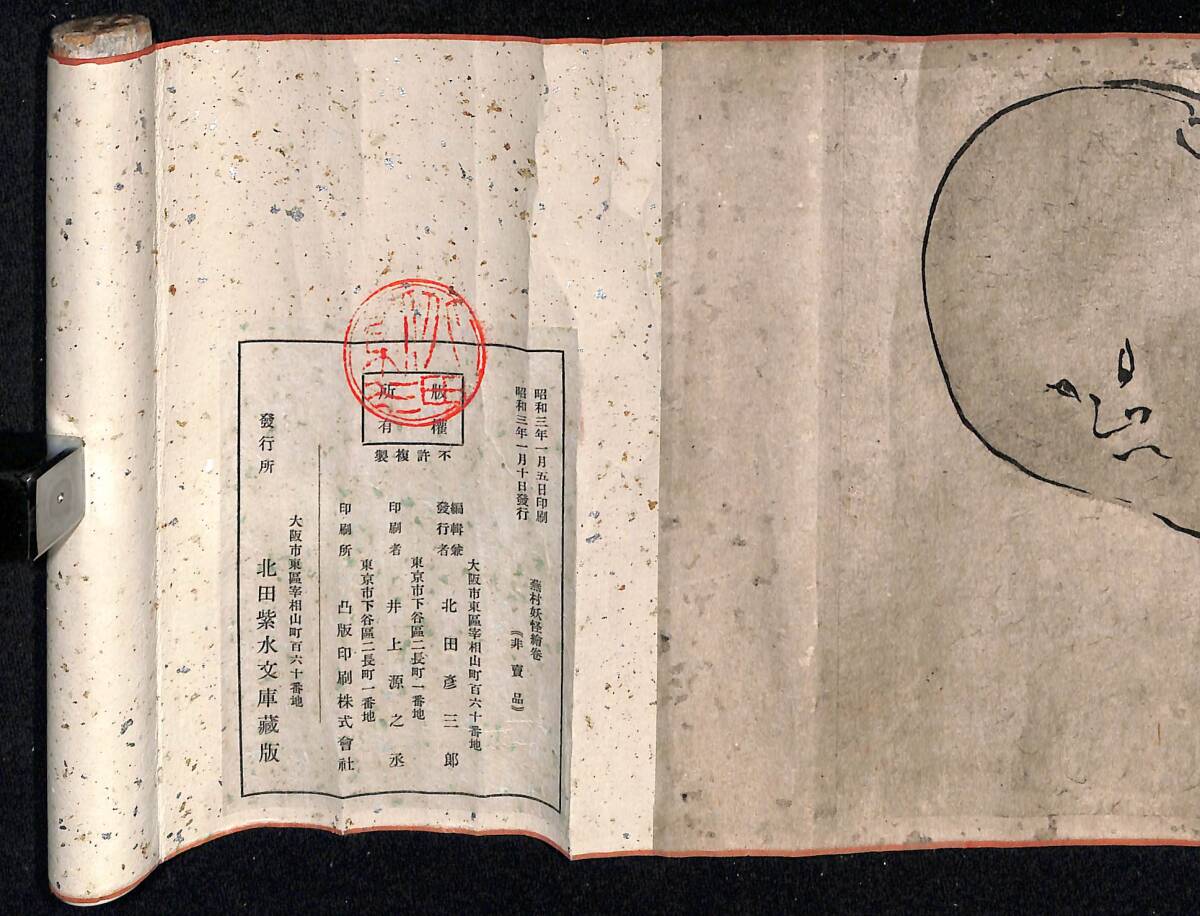 昭和三年一月五日印刷
昭和三年一月十日發行
蕪村妖怪繪卷
(非賣品)
版權
所有
不許複製
大阪市東區宰相山町百六十番地
編輯兼
發行者
北田彥三郎
東京市下谷區二長町一番地
印刷者 井上源之丞
東京市下谷區二長町一番地
印刷所 凸版印刷株式會社
大阪市東區宰相山町百六十番地
發行所 北田紫水文庫藏版